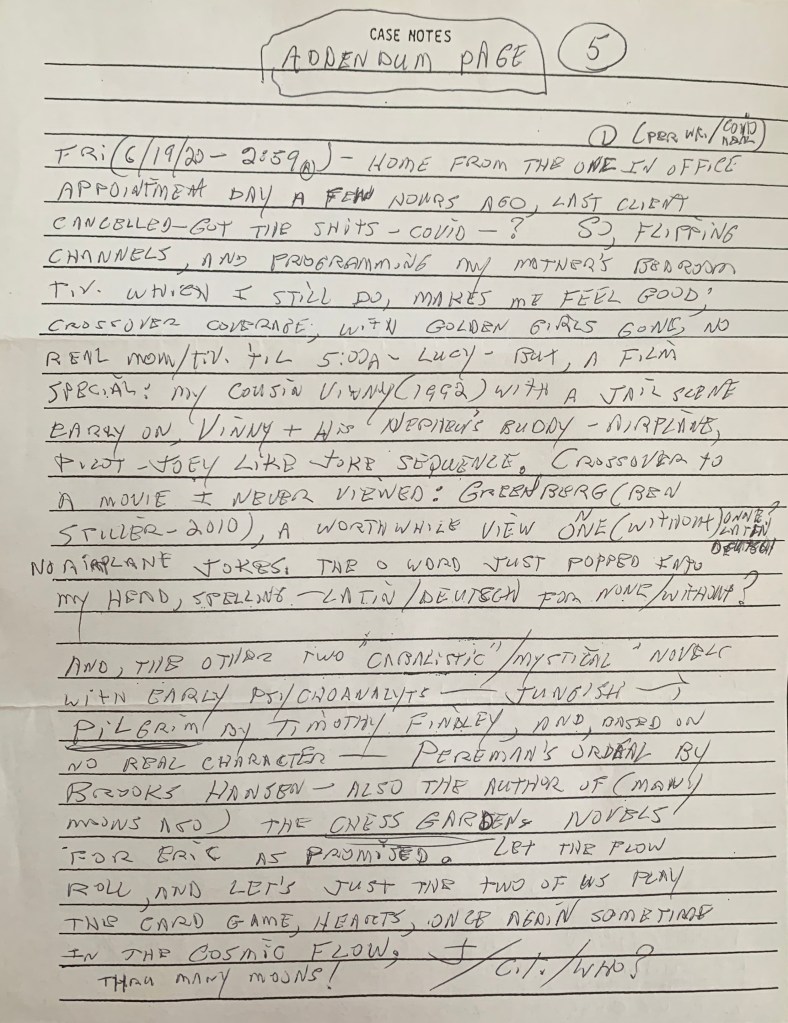 CASE NOTES
ADDENDUM PAGE
5
① (PER WK./COVID
FRI (6/19/20 - 2:59 A) - HOME FROM THE ONE IN OFFICE
APPOINTMENT DAY A FEW HOURS AGO, LAST CLIENT
CANCELLED - GOT THE SHITS - COVID - ? SO, FLIPPING
CHANNELS, AND PROGRAMMING MY MOTHER'S BEDROOM
T.V. WHICH I STILL DO, MAKES ME FEEL GOOD;
CROSSOVER COVERAGE, WITH GOLDEN GIRLS GONE, NO
REAL MOM/T.V. TIL 5:00A - LUCY - BUT, A FILM
SPECIAL: MY COUSIN VINNY (1992) WITH A JAIL SCENE
EARLY ON, VINNY + HIS NEPHEW'S BUDDY - AIRPLANE,
PILOT - JOEY LIKE JOKE SEQUENCE. CROSSOVER TO
A MOVIE I NEVER VIEWED: GREENBERG (BEN
STILLER - 2010), A WORTHWHILE VIEW ONE (WITHOUT) OHNE?
LATIN
DEUTSCH
NO AIRPLANE JOKES. THE O WORD JUST POPPED INTO
MY HEAD, SPELLING - LATIN/DEUTSCH FOR NONE/WITHOUT?
AND, THE OTHER TWO "CABALISTIC"/MYSTICAL" NOVELS
WITH EARLY PSYCHOANALYTS — JUNGISH —;
PILGRIM BY TIMOTHY FINDLEY, AND, BASED ON
NO REAL CHARACTER — PERLMAN'S ORDEAL BY
BROOKS HANSEN - ALSO THE AUTHOR OF (MANY
MOONS AGO) THE CHESS GARDEN. NOVELS
FOR ERIC AS PROMISED. LET THE FLOW
ROLL, AND LET'S JUST THE TWO OF US PLAY
THE CARD GAME, HEARTS, ONCE AGAIN SOMETIME
IN THE COSMIC FLOW, J/C.I./WHO?
THRU MANY MOONS!